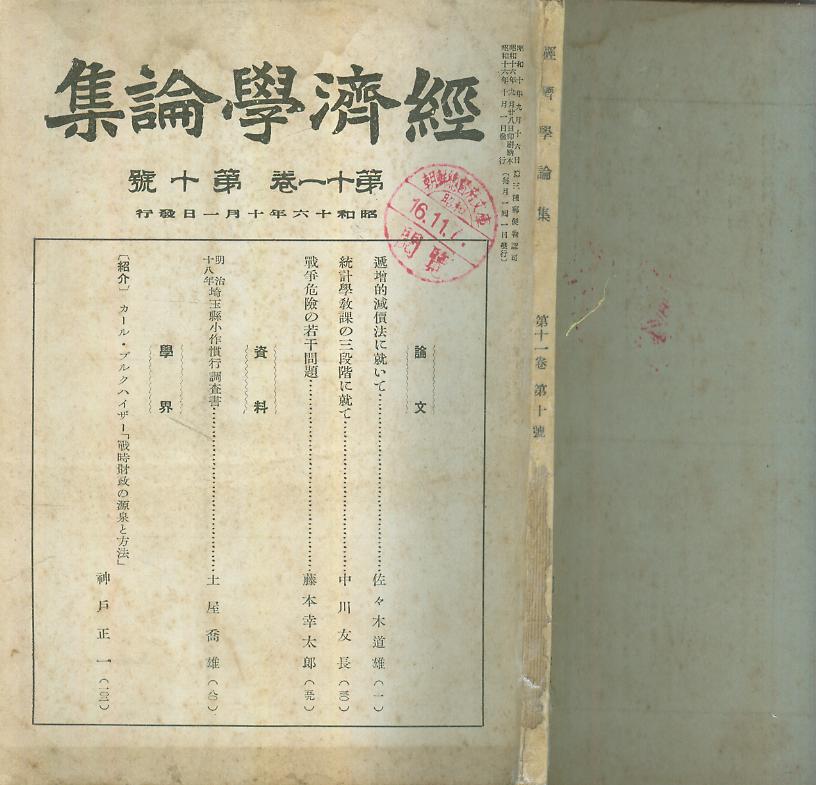 經濟學論集
第十一卷 第十號
昭和十六年十月一日發行
論文
遞增的減價法に就いて……佐々木道雄(一)
統計學敎課の三段階に就て……中川友長(四〇)
戰爭危險の若干問題……藤本幸太郎(五九)
資料
明治十八年埼玉縣小作慣行調査書……土屋喬雄(八〇)
學界
〔紹介〕カール・ブルクハイザー「戰時財政の源泉と方法」
神戶正一(一〇三)
朝鮮總督府文庫
昭和
16.11.
閱覽
昭和十六年十月一日發行(每月一回一日發行)
經濟學論集 第十一卷 第十號